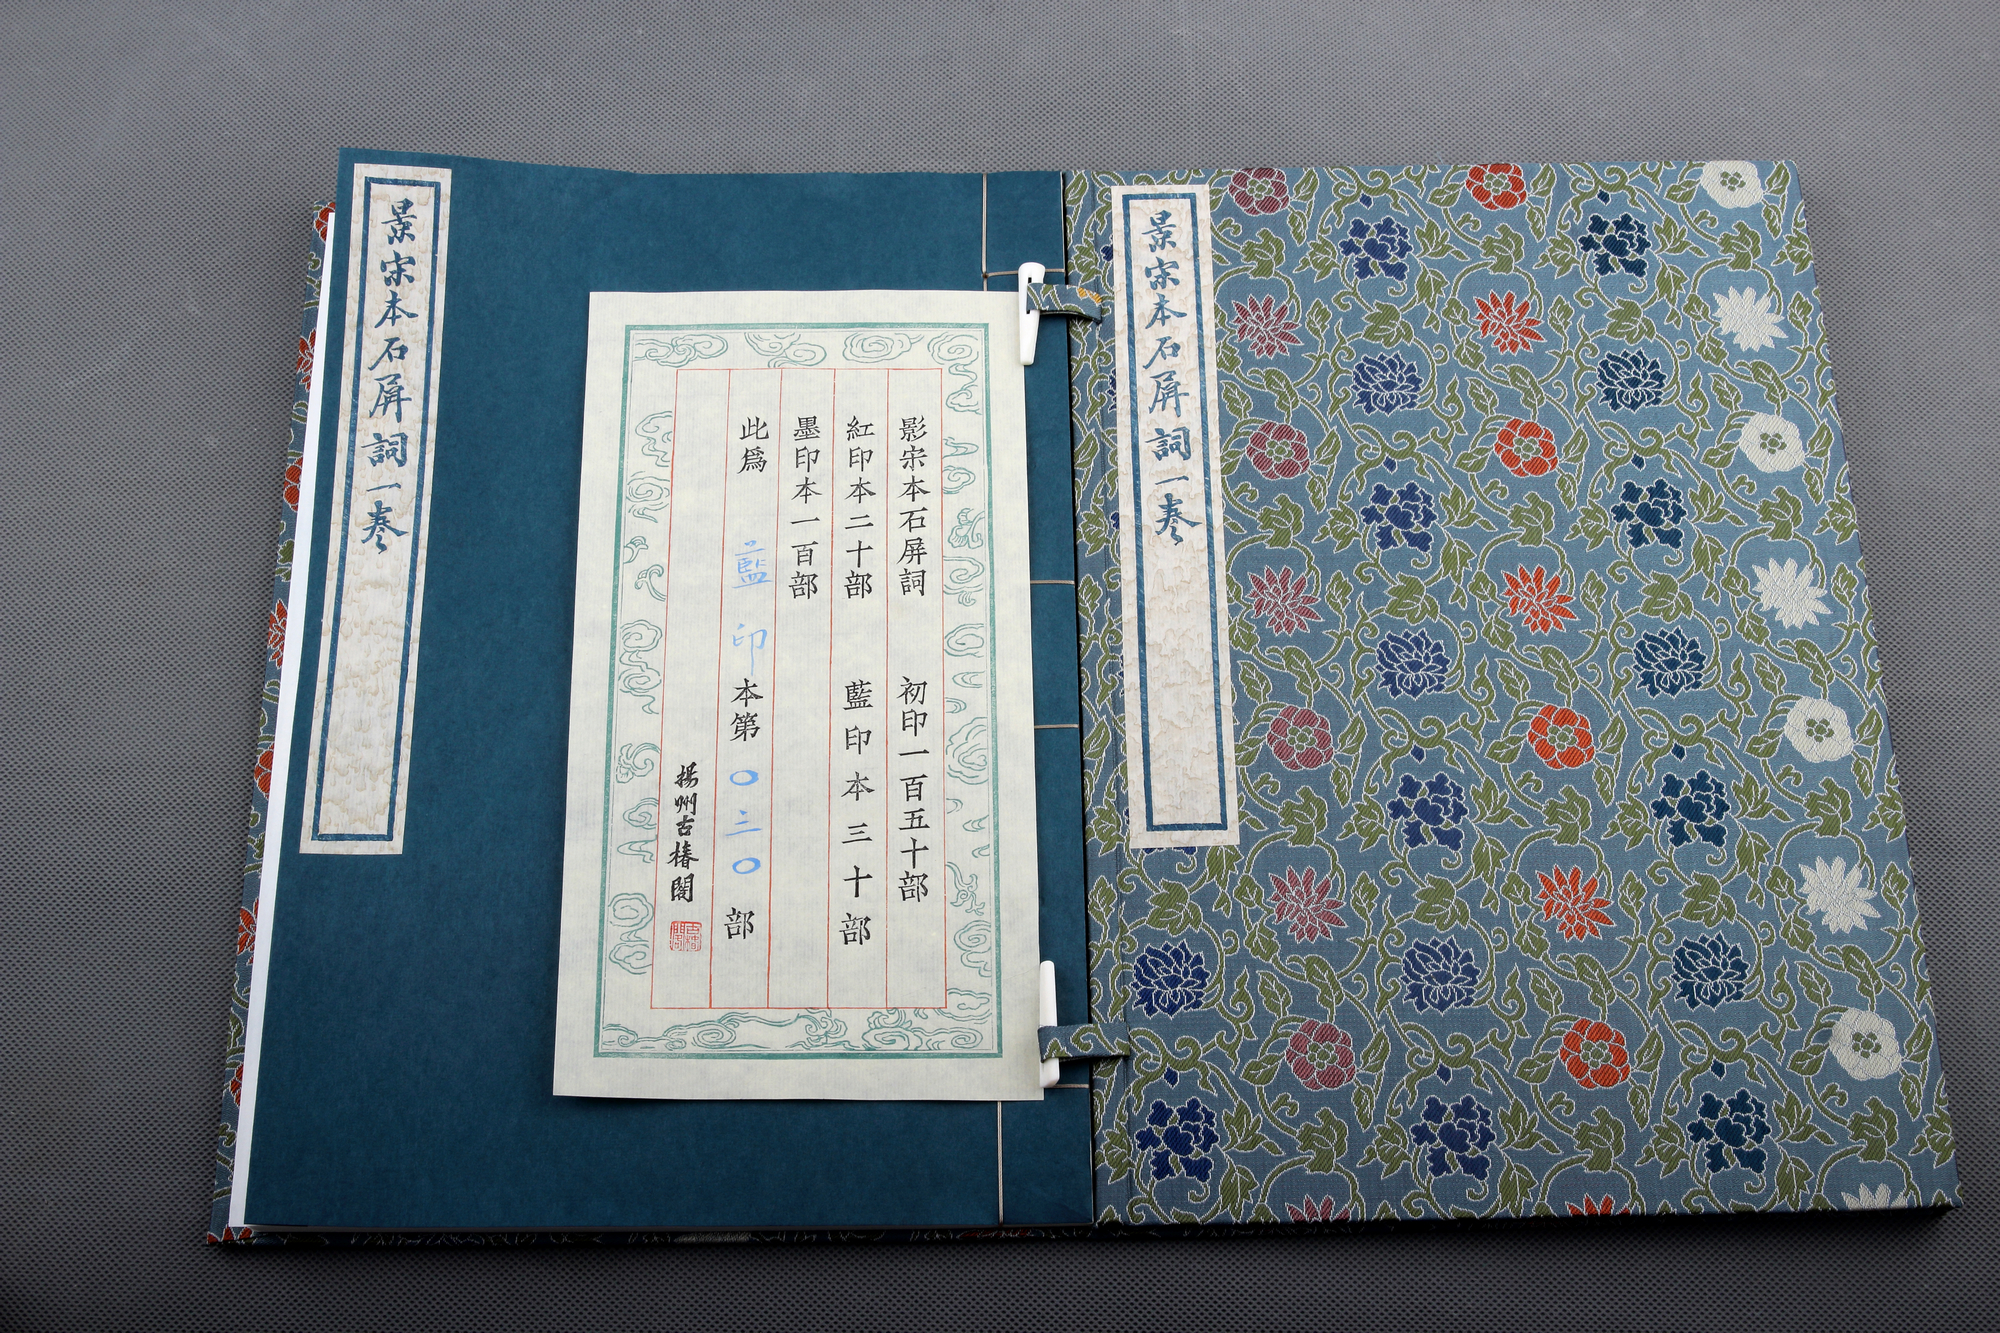 景宋本石屏詞一卷
影宋本石屏詞　初印一百五十部
紅印本二十部　藍印本三十部
墨印本一百部
此爲　藍印本第〇三〇部
揚州古椿閣
景宋本石屏詞一卷